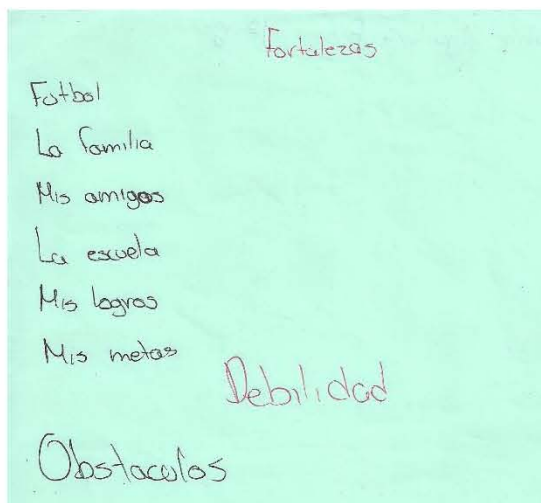 Fortalezas
Futbol
La familia
Mis amigos
La escuela
Mis logros
Mis metas
Debilidad
Obstaculos